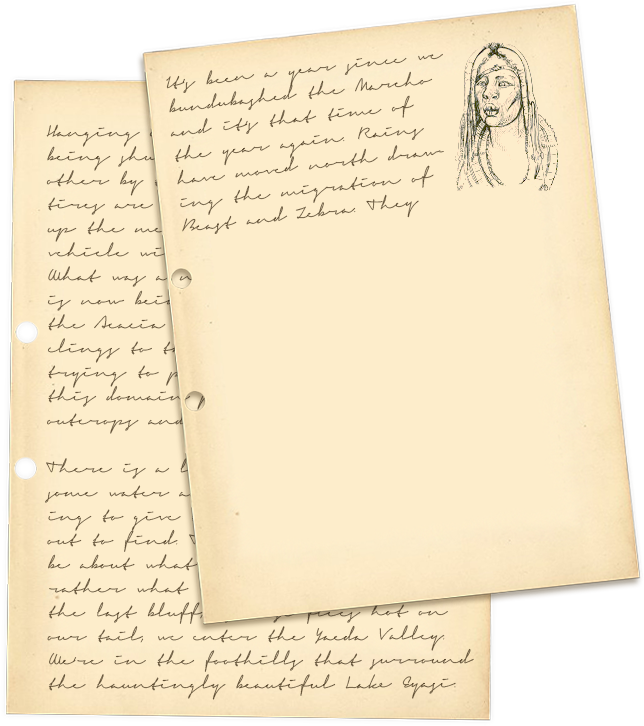 It's been a year since we
bundubashed the Marcho
and it's that time of
the year again. Rains
have moved north draw-
ing the migration of
Beast and Zebra. They
Hanging
being
other by
tires are
up the
vehicle
What was a
is now
the Acacia
clings to
trying to
this domain
outcrops and
There is a
some water
ing to give
out to find.
be about what
rather what
the last bluff flies hot on
our tail, we enter the Yaeda Valley.
We're in the foothills that surround
the hauntingly beautiful Lake Eyasi.